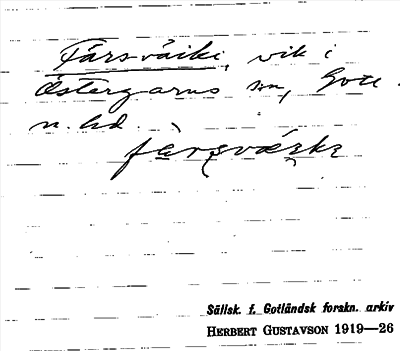 Färsväiki, vik i
Östergarns sn, Gotl.
n. hd.
Sällsk. f. Gotländsk forskn. arkiv
HERBERT GUSTAVSON 1919—26